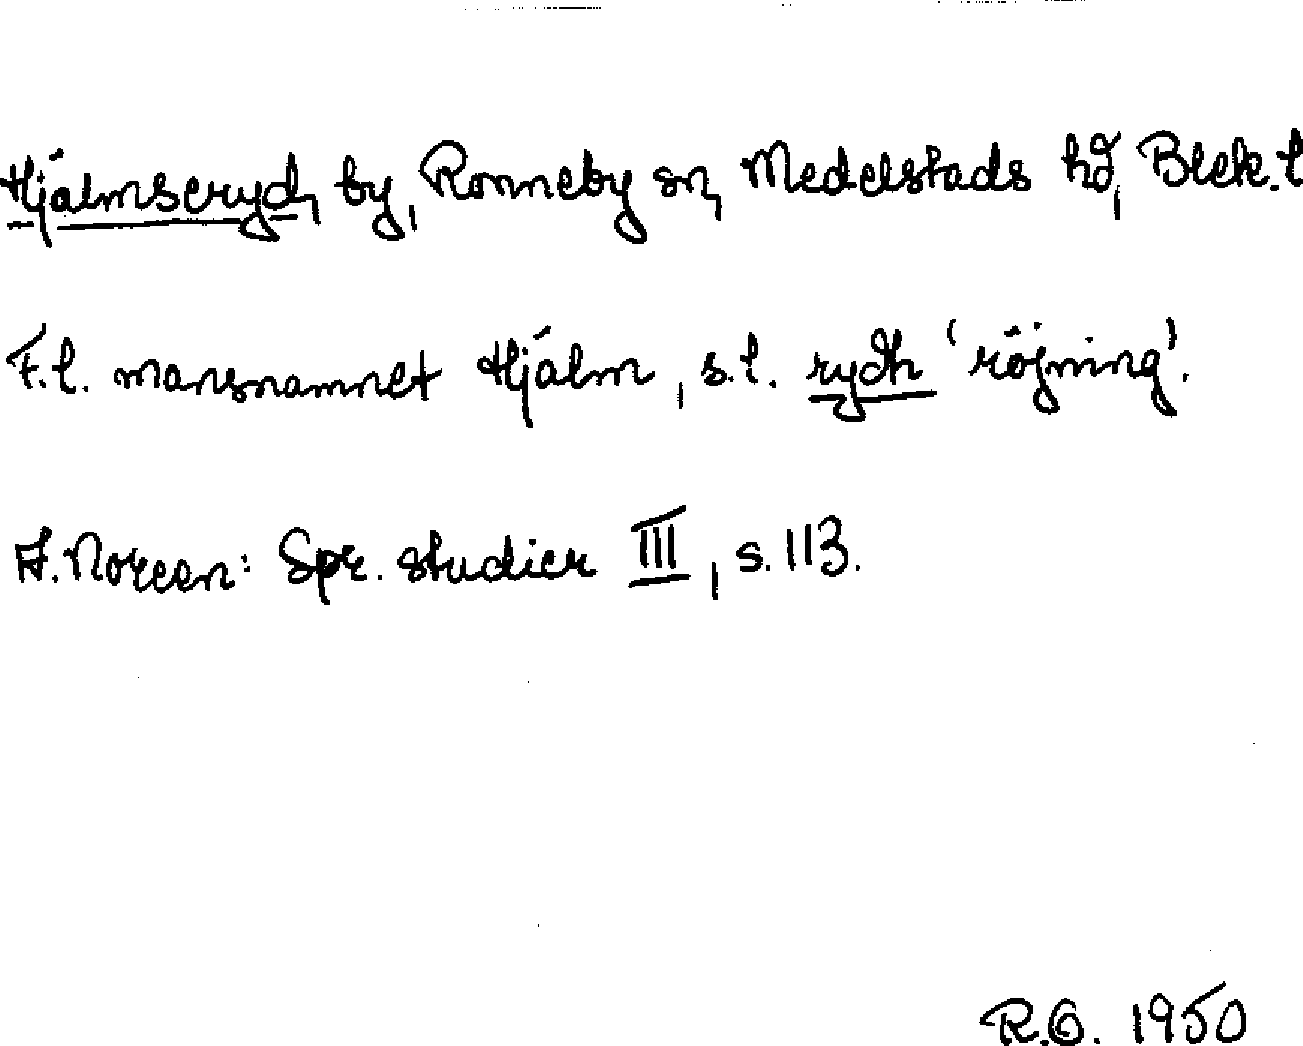 Hjälmseryd, by, Ronneby sn, Medelstads hd, Blek. l
F.l. mansnamnet Hjälm, s.l. rydh 'röjning'.
A. Noreen: Spr. studier III, s. 113.
R.G. 1950